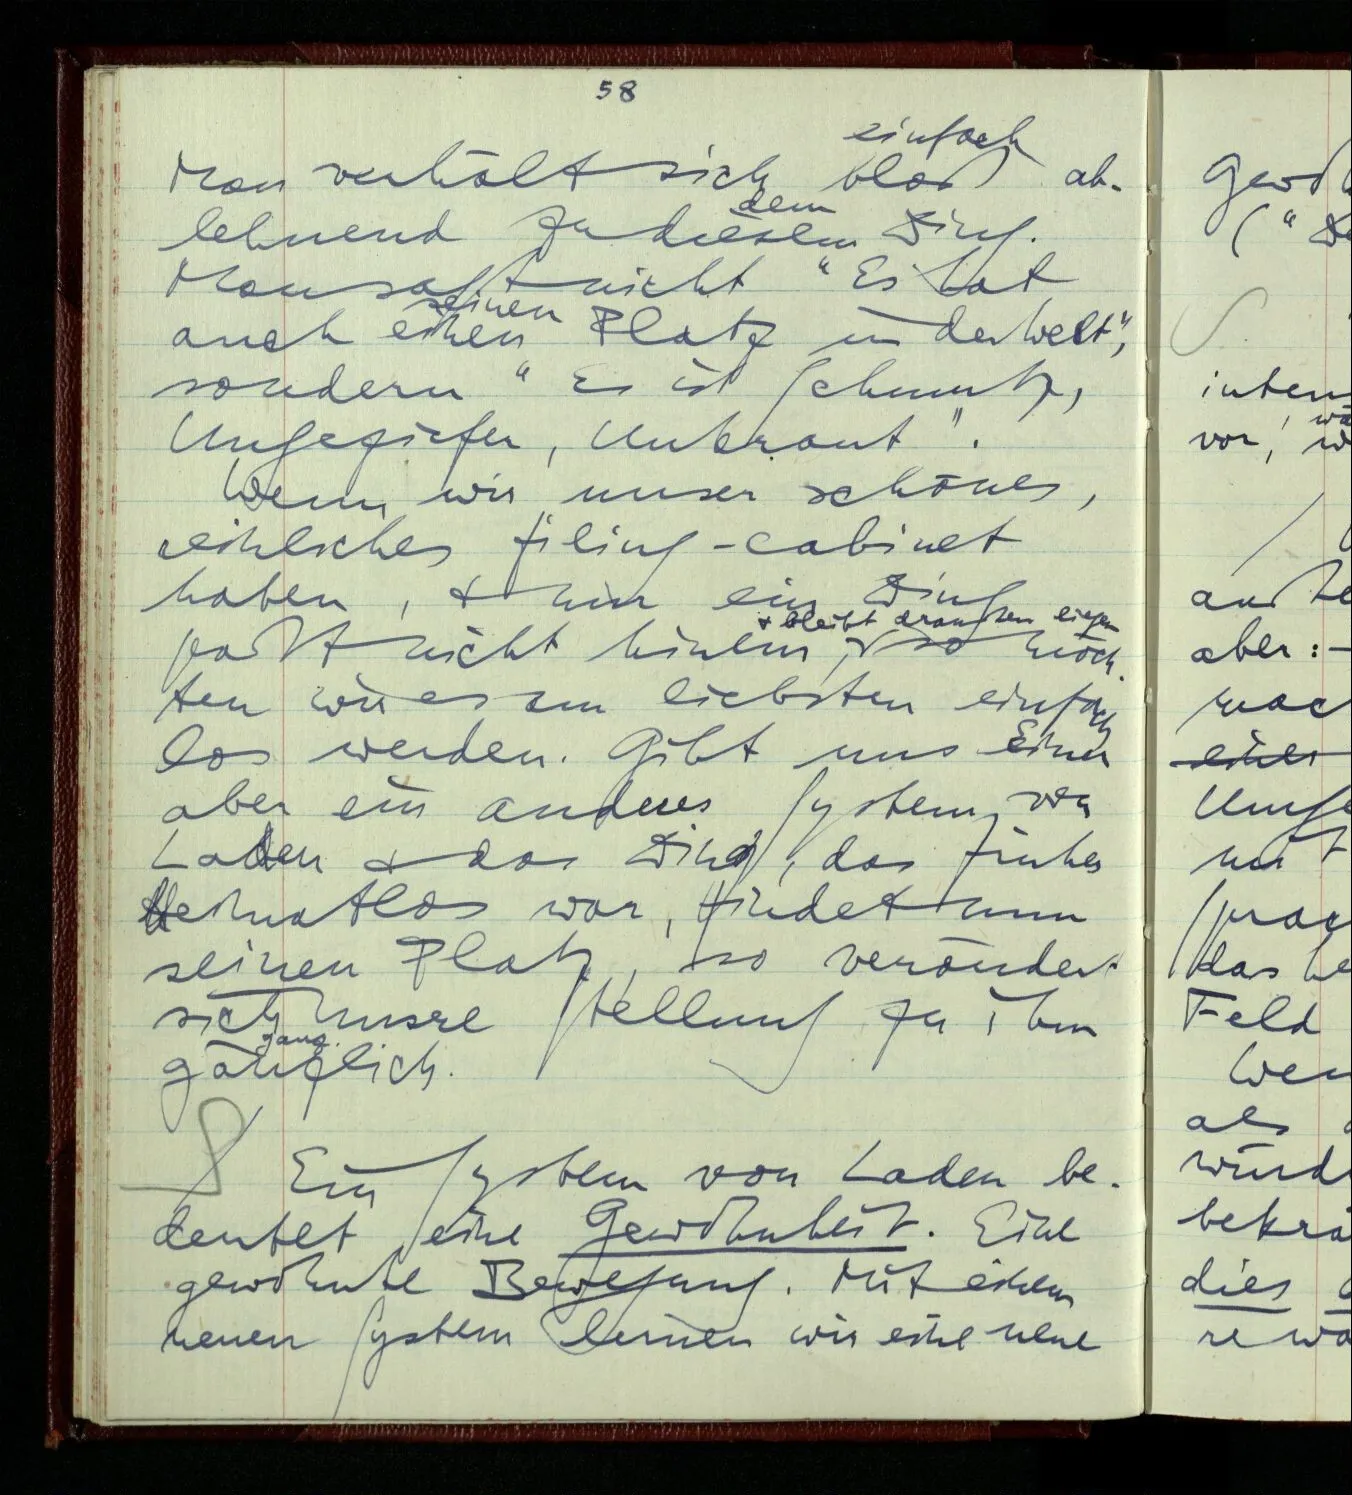 58
einfach
Man verhält sich bloß ab-
dem
lehnend zu diesem Ding.
Man sagt nicht "Es hat
seinen
auch einen Platz in der Welt",
sondern "Es ist Schmutz,
Ungeziefer, Unkraut".
Wenn wir unser schönes,
reinliches filing-cabinet
haben, & nun ein Ding
& bleibt draußen liegen
paßt nicht hinein, so möch-
ten wir es am liebsten einfach
los werden. Gibt uns Einer
aber ein anderes System von
Laden & das Ding, das früher
Heimatlos war, findet nun
seinen Platz, so verändert
sich unsre Stellung zu ihm
ganz
gänzlich.
Ein System von Laden be-
deutet eine Gewohnheit. Eine
gewohnte Bewegung. Mit einem
neuen System lernen wir eine neue
intens
vor,
auße
aber:-
mac
einer
mit
das
Feld
Wen
als
würd
bekrä
dies